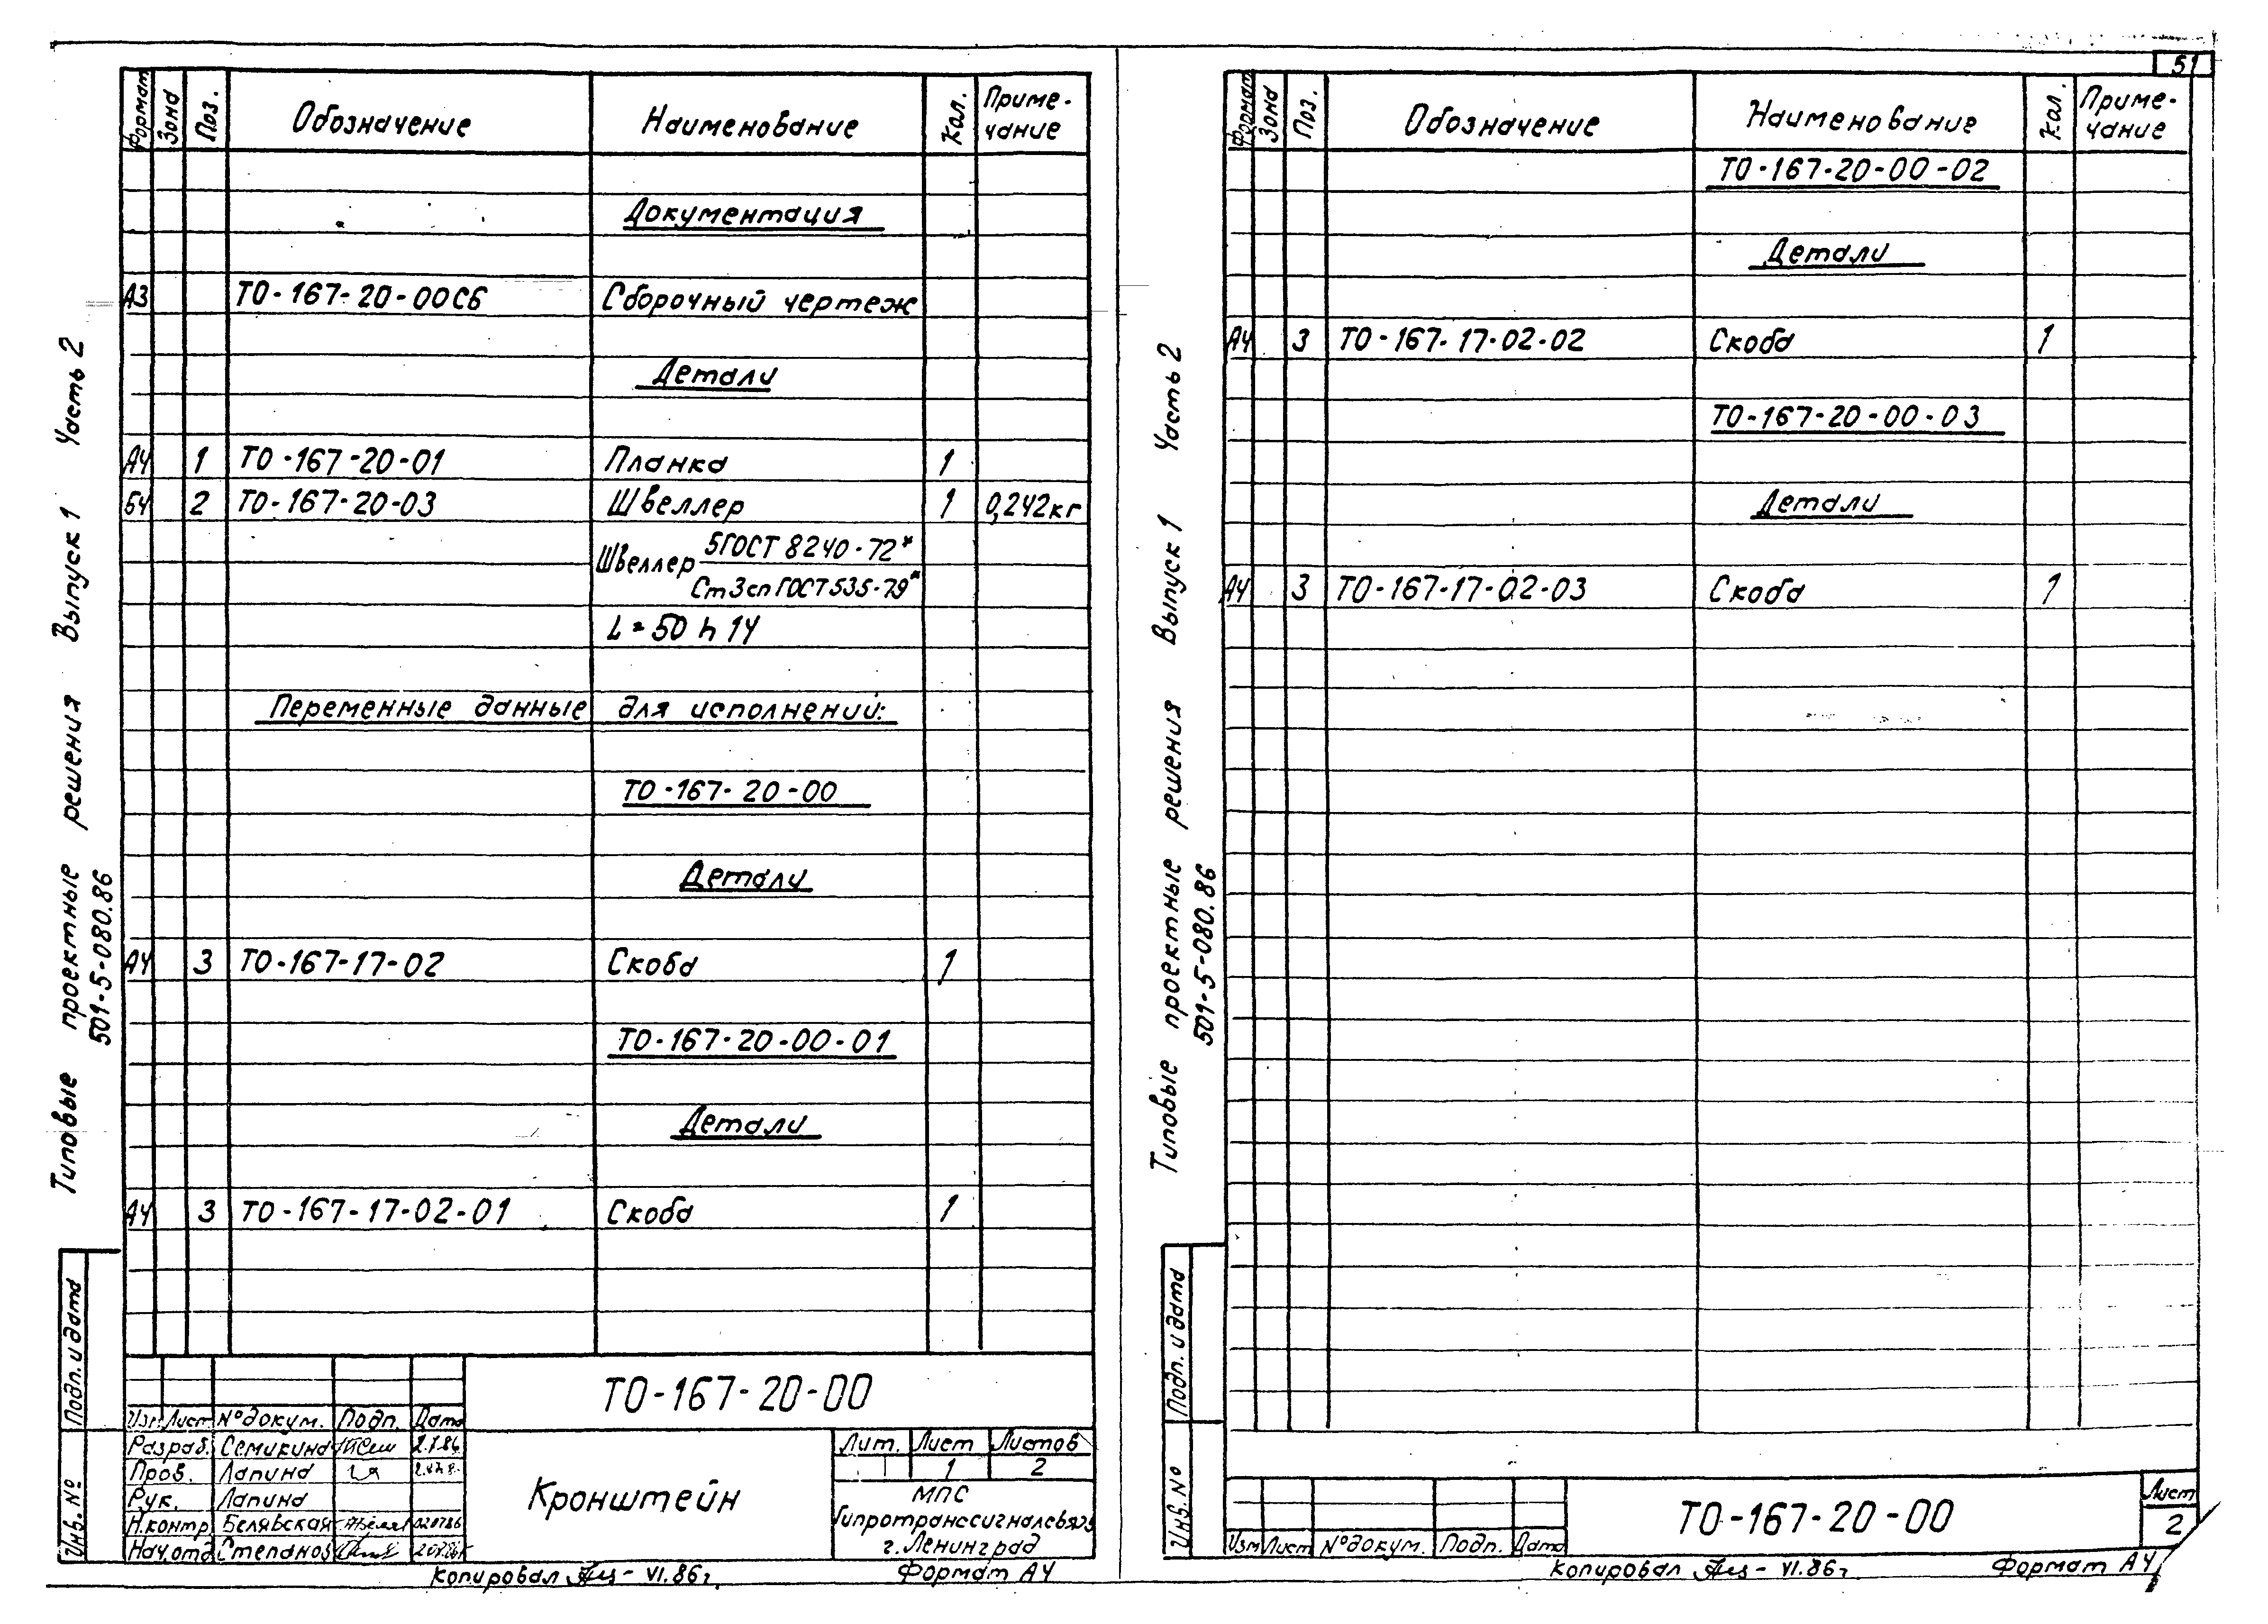 Формат Зона Поз. Обозначение Наименование Кол. Приме-
чание
Документация
А3 ТО-167-20-00СБ Сборочный чертеж
Детали
А4 1 ТО-167-20-01 Планка 1
БЧ 2 ТО-167-20-03 Швеллер 1 0,242кг
Швеллер 5 ГОСТ 8240-72*
Ст3сп ГОСТ 535-79*
L=50 h 14
Переменные данные для исполнений:
ТО-167-20-00
Детали
А4 3 ТО-167-17-02 Скоба 1
ТО-167-20-00-01
Детали
А4 3 ТО-167-17-02-01 Скоба 1
Типовые проектные решения Выпуск 1 Часть 2
501-5-080.86
Подп. и дата
Инв. №
ТО-167-20-00
Изм Лист № докум. Подп. Дата
Разраб. Семикина 2.7.86
Пров. Лапина
Рук. Лапина
Н.контр Белявская 020786
Нач.отд Степанов
Кронштейн
Лит. Лист Листов
1 2
МПС
Гипротранссигналсвязь
г. Ленинград
Копировал VI.86г. Формат А4
51
Формат Зона Поз. Обозначение Наименование Кол. Приме-
чание
ТО-167-20-00-02
Детали
А4 3 ТО-167-17-02-02 Скоба 1
ТО-167-20-00-03
Детали
А4 3 ТО-167-17-02-03 Скоба 1
Типовые проектные решения Выпуск 1 Часть 2
501-5-080.86
Подп. и дата
Инв. №
Изм Лист № докум. Подп. Дата
ТО-167-20-00
Лист
2
Копировал VI.86г Формат А4